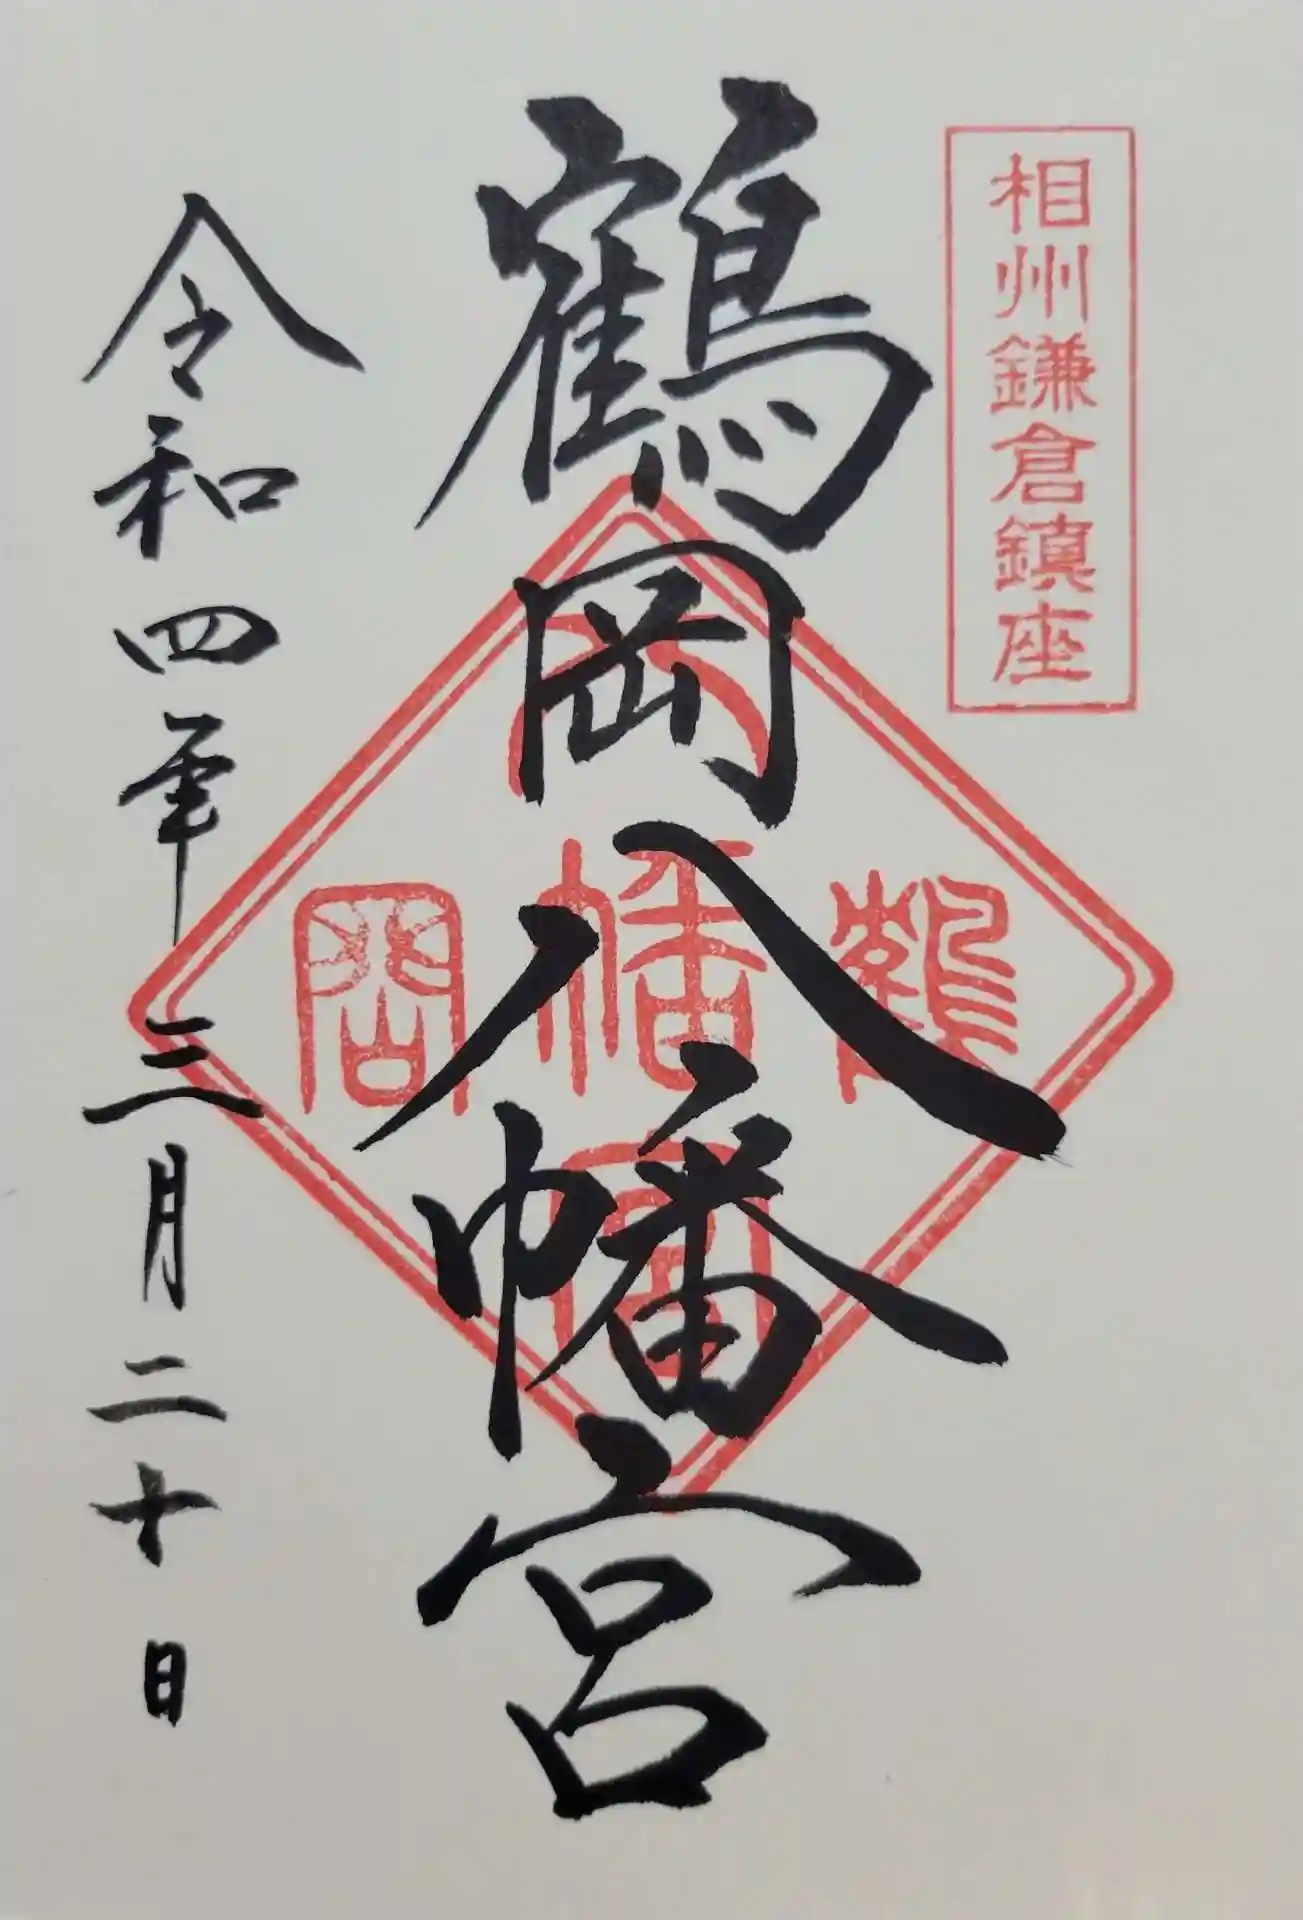 相州鎌倉鎮座
鶴岡八幡宮
令和四年三月二十日
鶴
八
幡
宮
岡